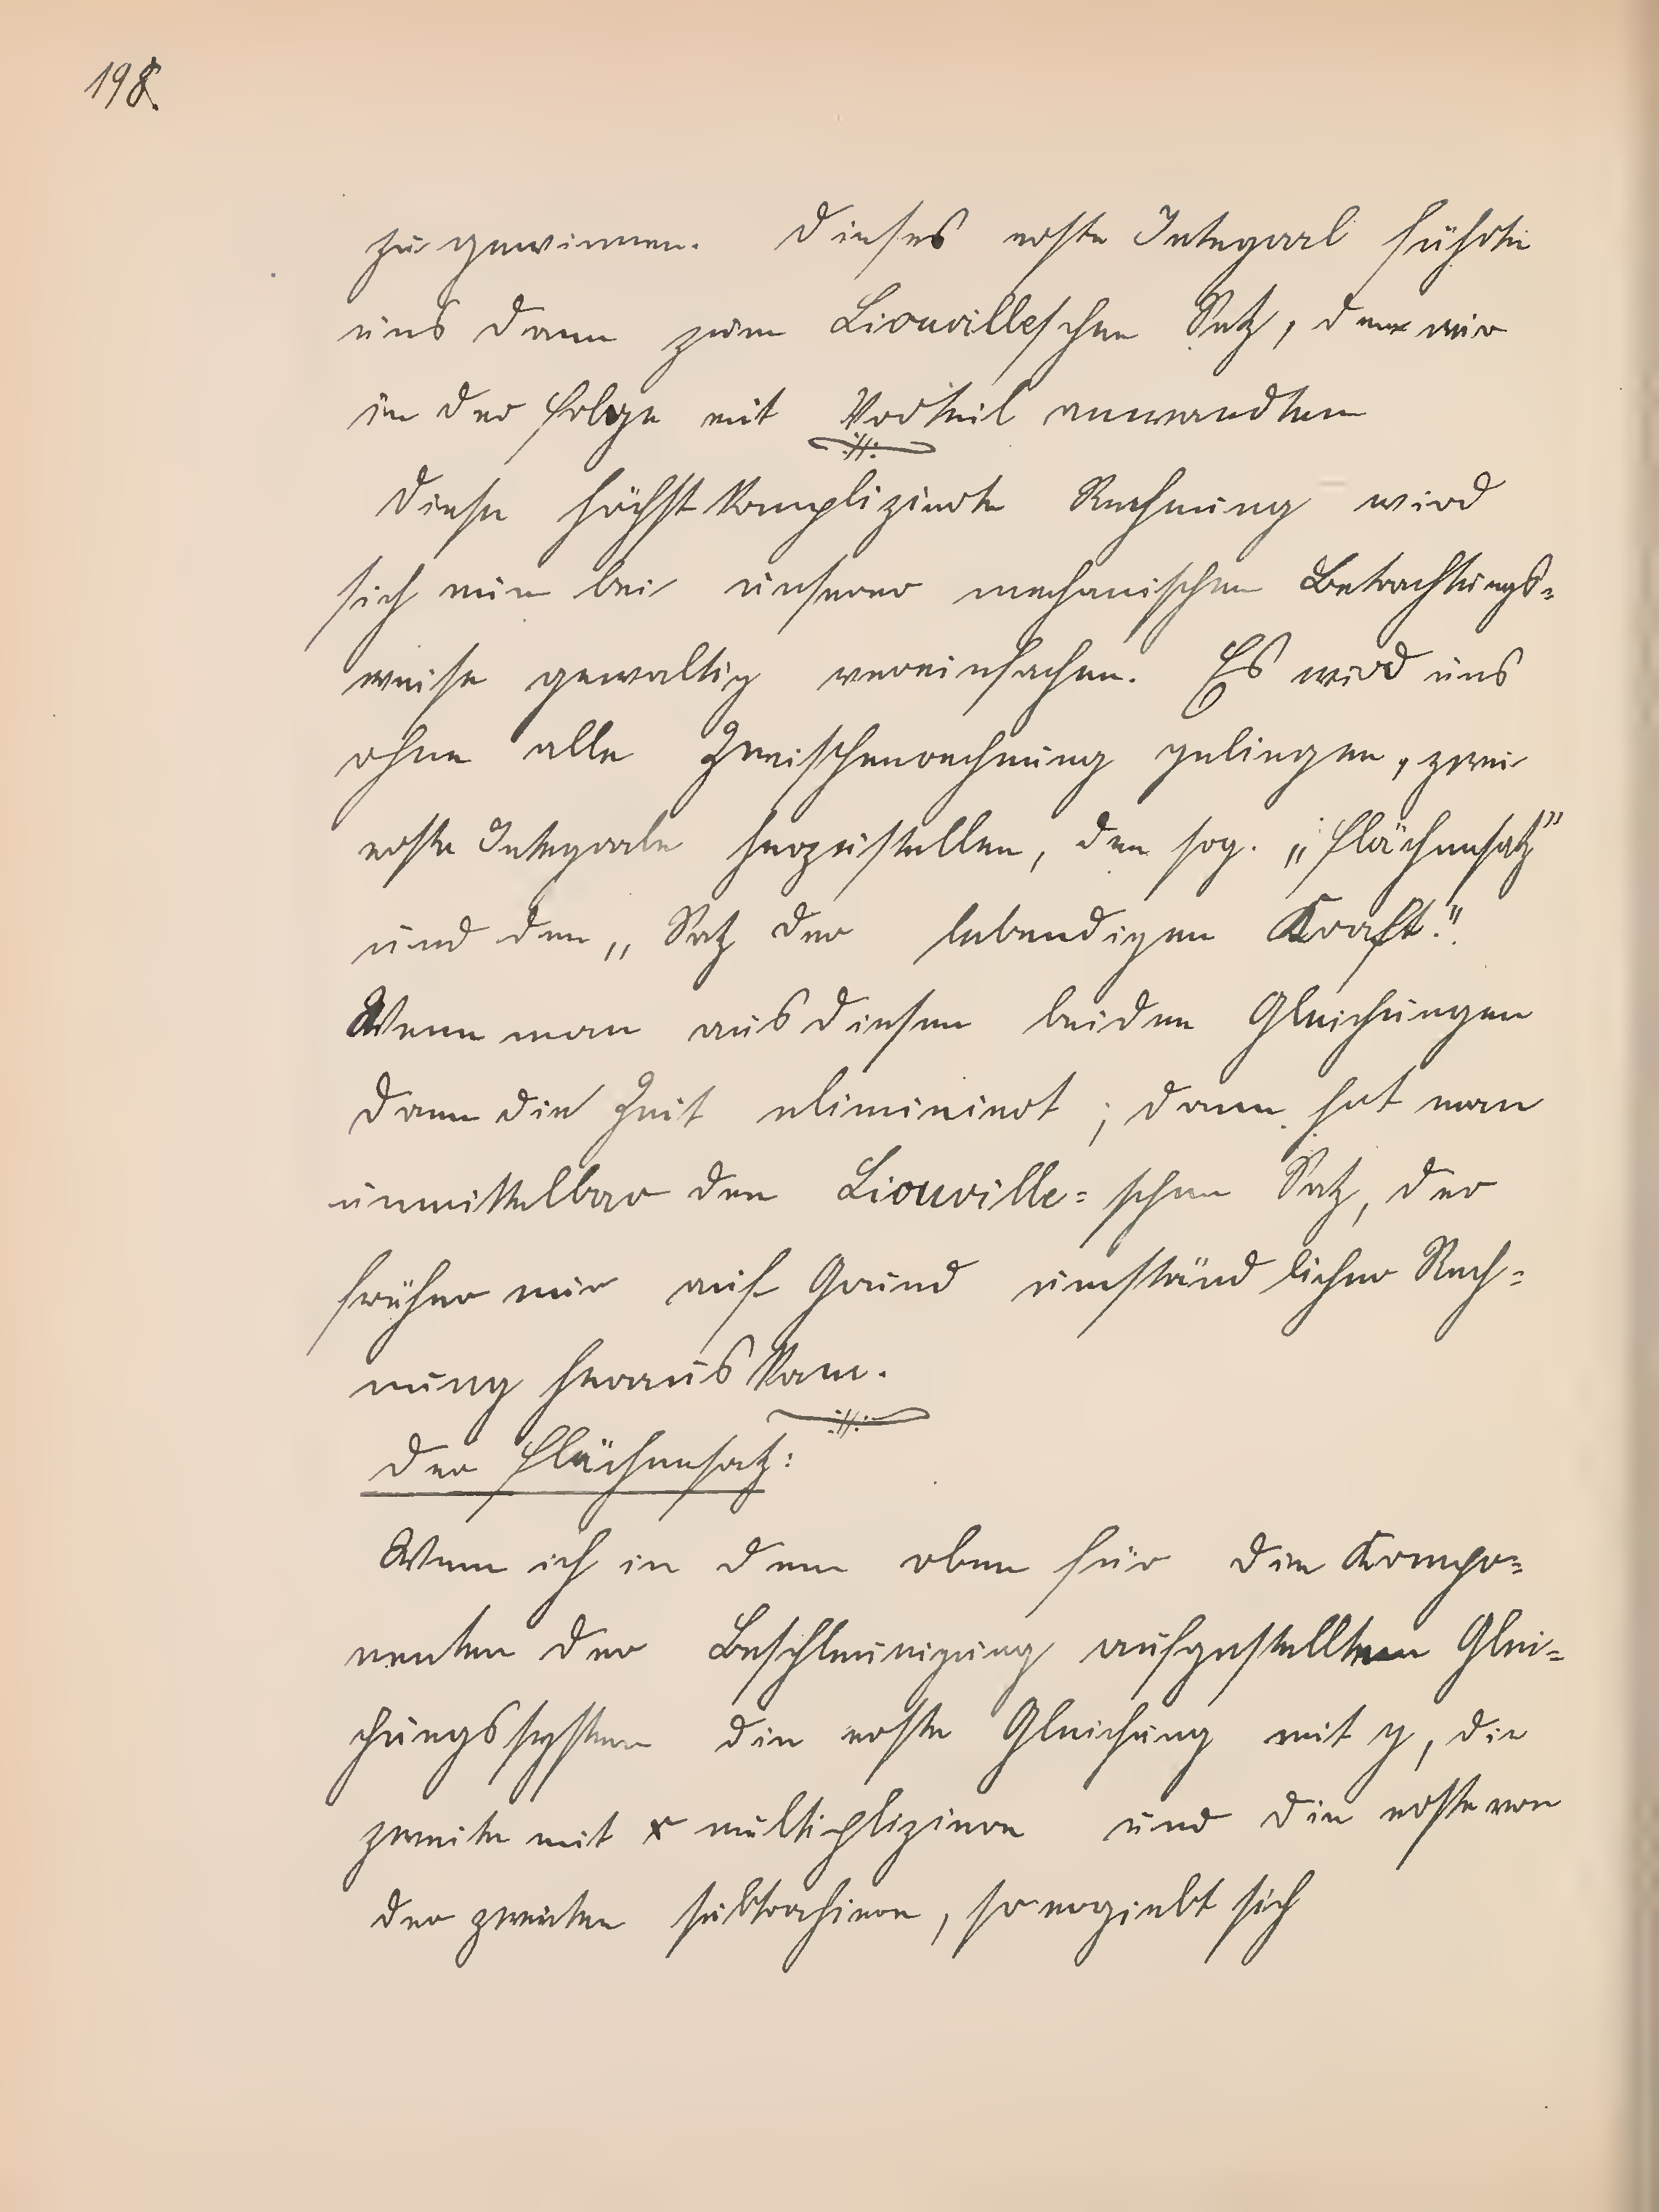 198.
zu gewinnen. Dieses erste Integral führte
uns dann zum Liouvilleschen Satz, den wir
in der Folge mit Vorteil anwandten
Diese höchst komplizierte Rechnung wird
sich nun bei unserer mechanischen Betrachtungs=
weise gewaltig vereinfachen. Es wird uns
ohne alle Zwischenrechnung gelingen, zwei
erste Integrale herzustellen, den sog. „Flächensatz”
und den „Satz der lebendigen Kraft."
Wenn man aus diesen beiden Gleichungen
dann die Zeit eliminiert; dann hat man
unmittelbar den Liouville=schen Satz, der
früher nur auf Grund umständlicher Rech=
nung herauskam.
Der Flächensatz:
Wenn ich in dem oben für die Kompo=
nenten der Beschleunigung aufgestellten Glei=
chungssystem die erste Gleichung mit y, die
zweite mit x multipliziere und die erste von
der zweiten subtrahiere, so ergiebt sich